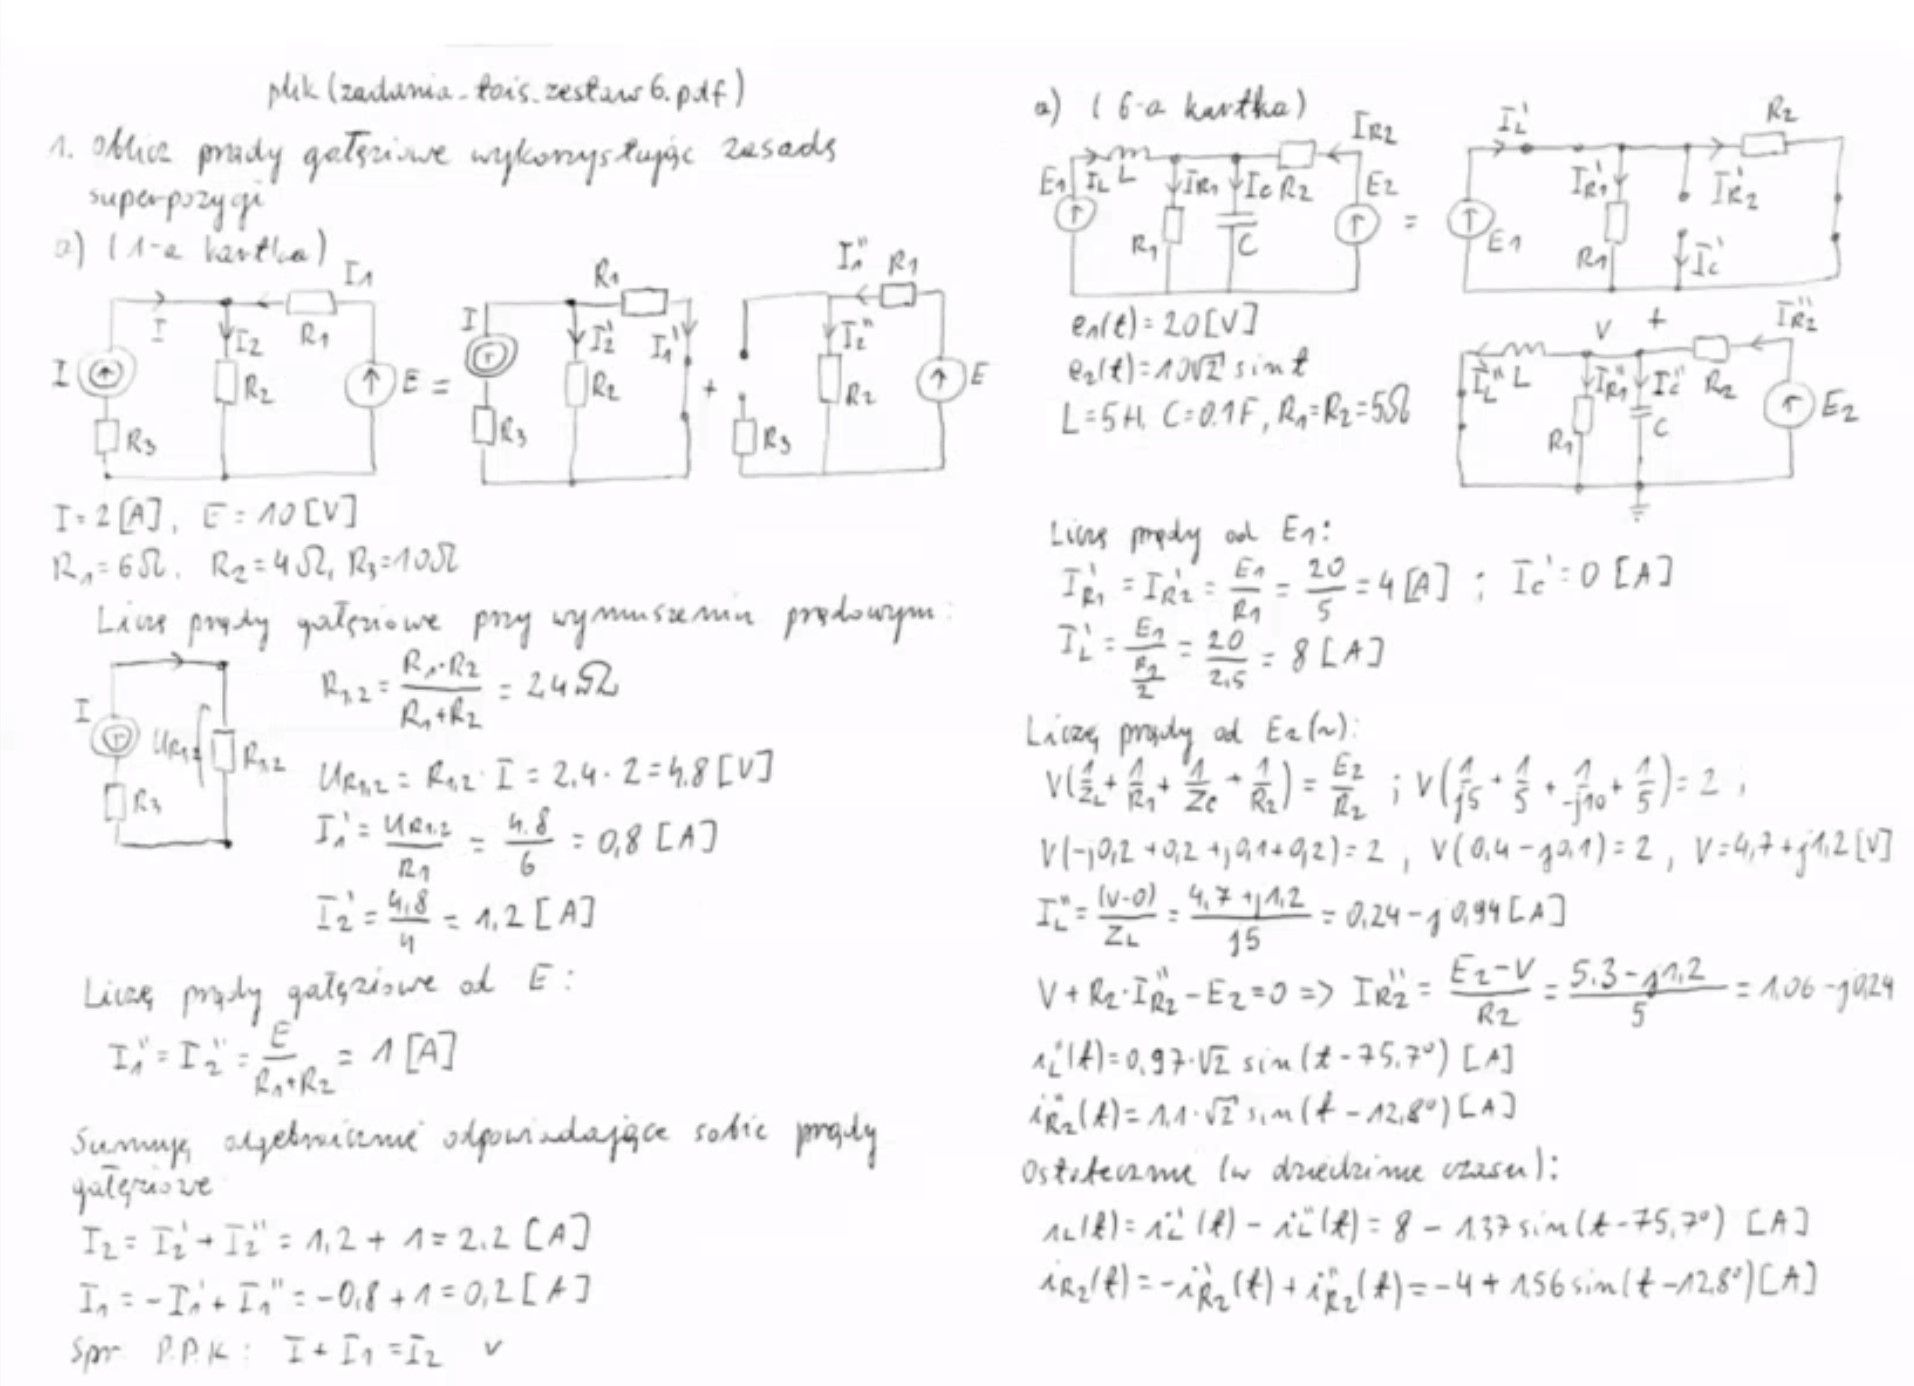 plik (zadania_tois_zestaw 6.pdf)
1. Oblicz prądy gałęziowe wykorzystując zasadę
superpozycji
a) (1-a kartka)
I1
I
I2
R1
I
R2
E
=
R3
R1
I
I2'
I1'
R2
R3
+
I1''
R1
I2''
R2
E
R3
I = 2 [A], E = 10 [V]
R1 = 6Ω, R2 = 4Ω, R3 = 10Ω
Liczę prądy gałęziowe przy wymuszeniu prądowym:
I
UR1,2
R1,2
R3
R1,2 = R1·R2 / (R1+R2) = 2,4Ω
UR1,2 = R1,2 · I = 2,4 · 2 = 4,8 [V]
I1' = UR1,2 / R1 = 4,8 / 6 = 0,8 [A]
I2' = 4,8 / 4 = 1,2 [A]
Liczę prądy gałęziowe od E:
I1'' = I2'' = E / (R1+R2) = 1 [A]
Sumuję algebraicznie odpowiadające sobie prądy
gałęziowe
I2 = I2' + I2'' = 1,2 + 1 = 2,2 [A]
I1 = -I1' + I1'' = -0,8 + 1 = 0,2 [A]
Spr. P.P.K: I + I1 = I2 v
a) (6-a kartka)
IR2
E1
IL
L
IR1
IC
R2
E2
R1
C
=
IL'
R2
IR1'
IR2'
E1
R1
IC'
+
V
IR2''
IL''
L
IR1''
IC''
R2
E2
R1
C
e1(t) = 20 [V]
e2(t) = 10√2 sin t
L = 5H, C = 0.1F, R1 = R2 = 5Ω
Liczę prądy od E1:
IR1' = IR2' = E1 / R1 = 20 / 5 = 4 [A] ; IC' = 0 [A]
IL' = E1 / (R2 / 2) = 20 / 2,5 = 8 [A]
Liczę prądy od E2 (~):
V(1/ZL + 1/R1 + 1/ZC + 1/R2) = E2/R2 ; V(1/j5 + 1/5 + 1/-j10 + 1/5) = 2 ,
V(-j0,2 + 0,2 + j0,1 + 0,2) = 2 , V(0,4 - j0,1) = 2 , V = 4,7 + j1,2 [V]
IL'' = (V-0) / ZL = 4,7 + j1,2 / j5 = 0,24 - j0,94 [A]
V + R2·IR2'' - E2 = 0 => IR2'' = E2-V / R2 = 5.3 - j1,2 / 5 = 1.06 - j0,24
iL''(t) = 0,97·√2 sin(t - 75,7°) [A]
iR2''(t) = 1,1·√2 sin(t - 12,8°) [A]
Ostatecznie (w dziedzinie czasu):
iL(t) = iL'(t) - iL''(t) = 8 - 1.37 sin(t - 75,7°) [A]
iR2(t) = -iR2'(t) + iR2''(t) = -4 + 1,56 sin(t - 12,8°) [A]